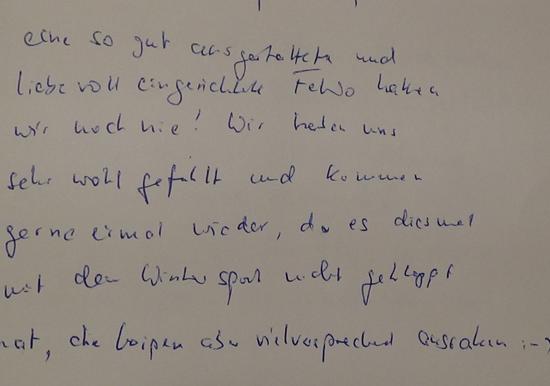 eine so gut ausgestattete und
liebevoll eingerichtete FeWo hatten
wir noch nie! Wir haben uns
sehr wohl gefühlt und kommen
gerne einmal wieder, da es diesmal
mit dem Wintersport nicht geklappt
hat, die Loipen aber vielversprechend aussahen :-)